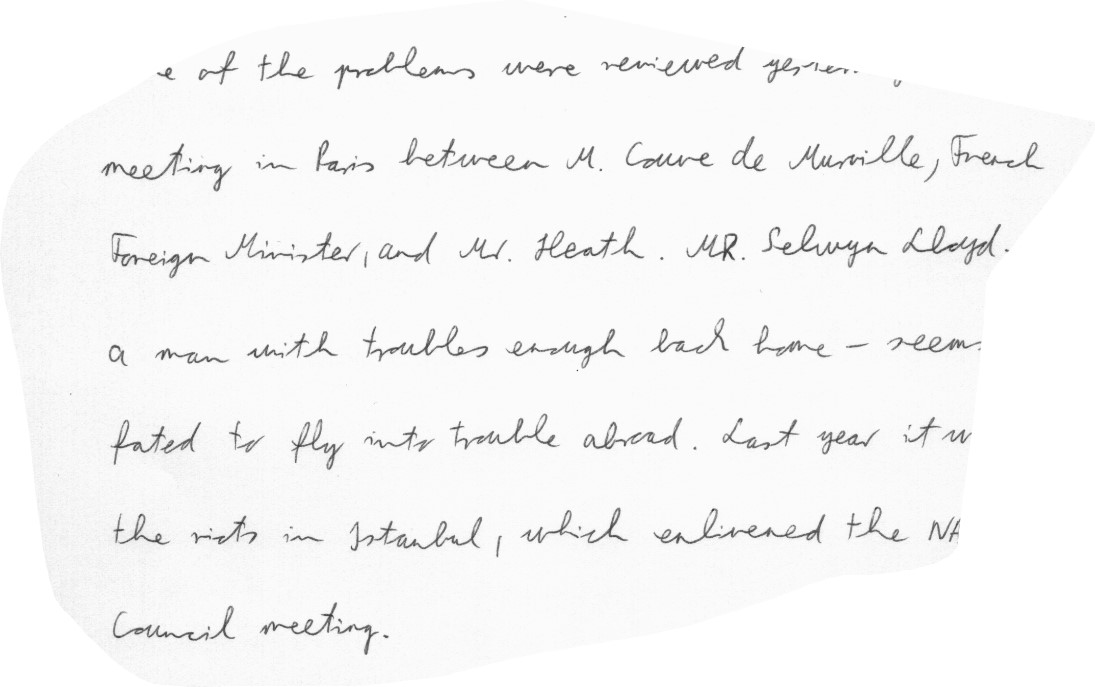 of the problems were reviewed
meeting in Paris between M. Couve de Murville, French
Foreign Minister, and Mr. Heath. MR. Selwyn Lloyd.
a man with troubles enough back home - seem
fated to fly into trouble abroad. Last year it
the riots in Istanbul, which enlivened the NA
Council meeting.